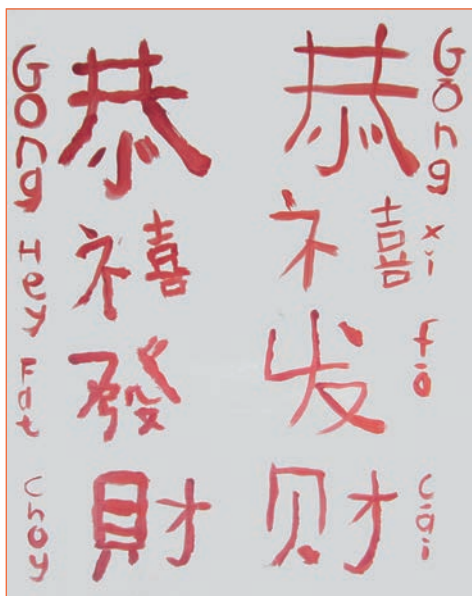 Gong Hey Fat Choy
恭禧發財
恭禧发财
Gōng xi fā cái